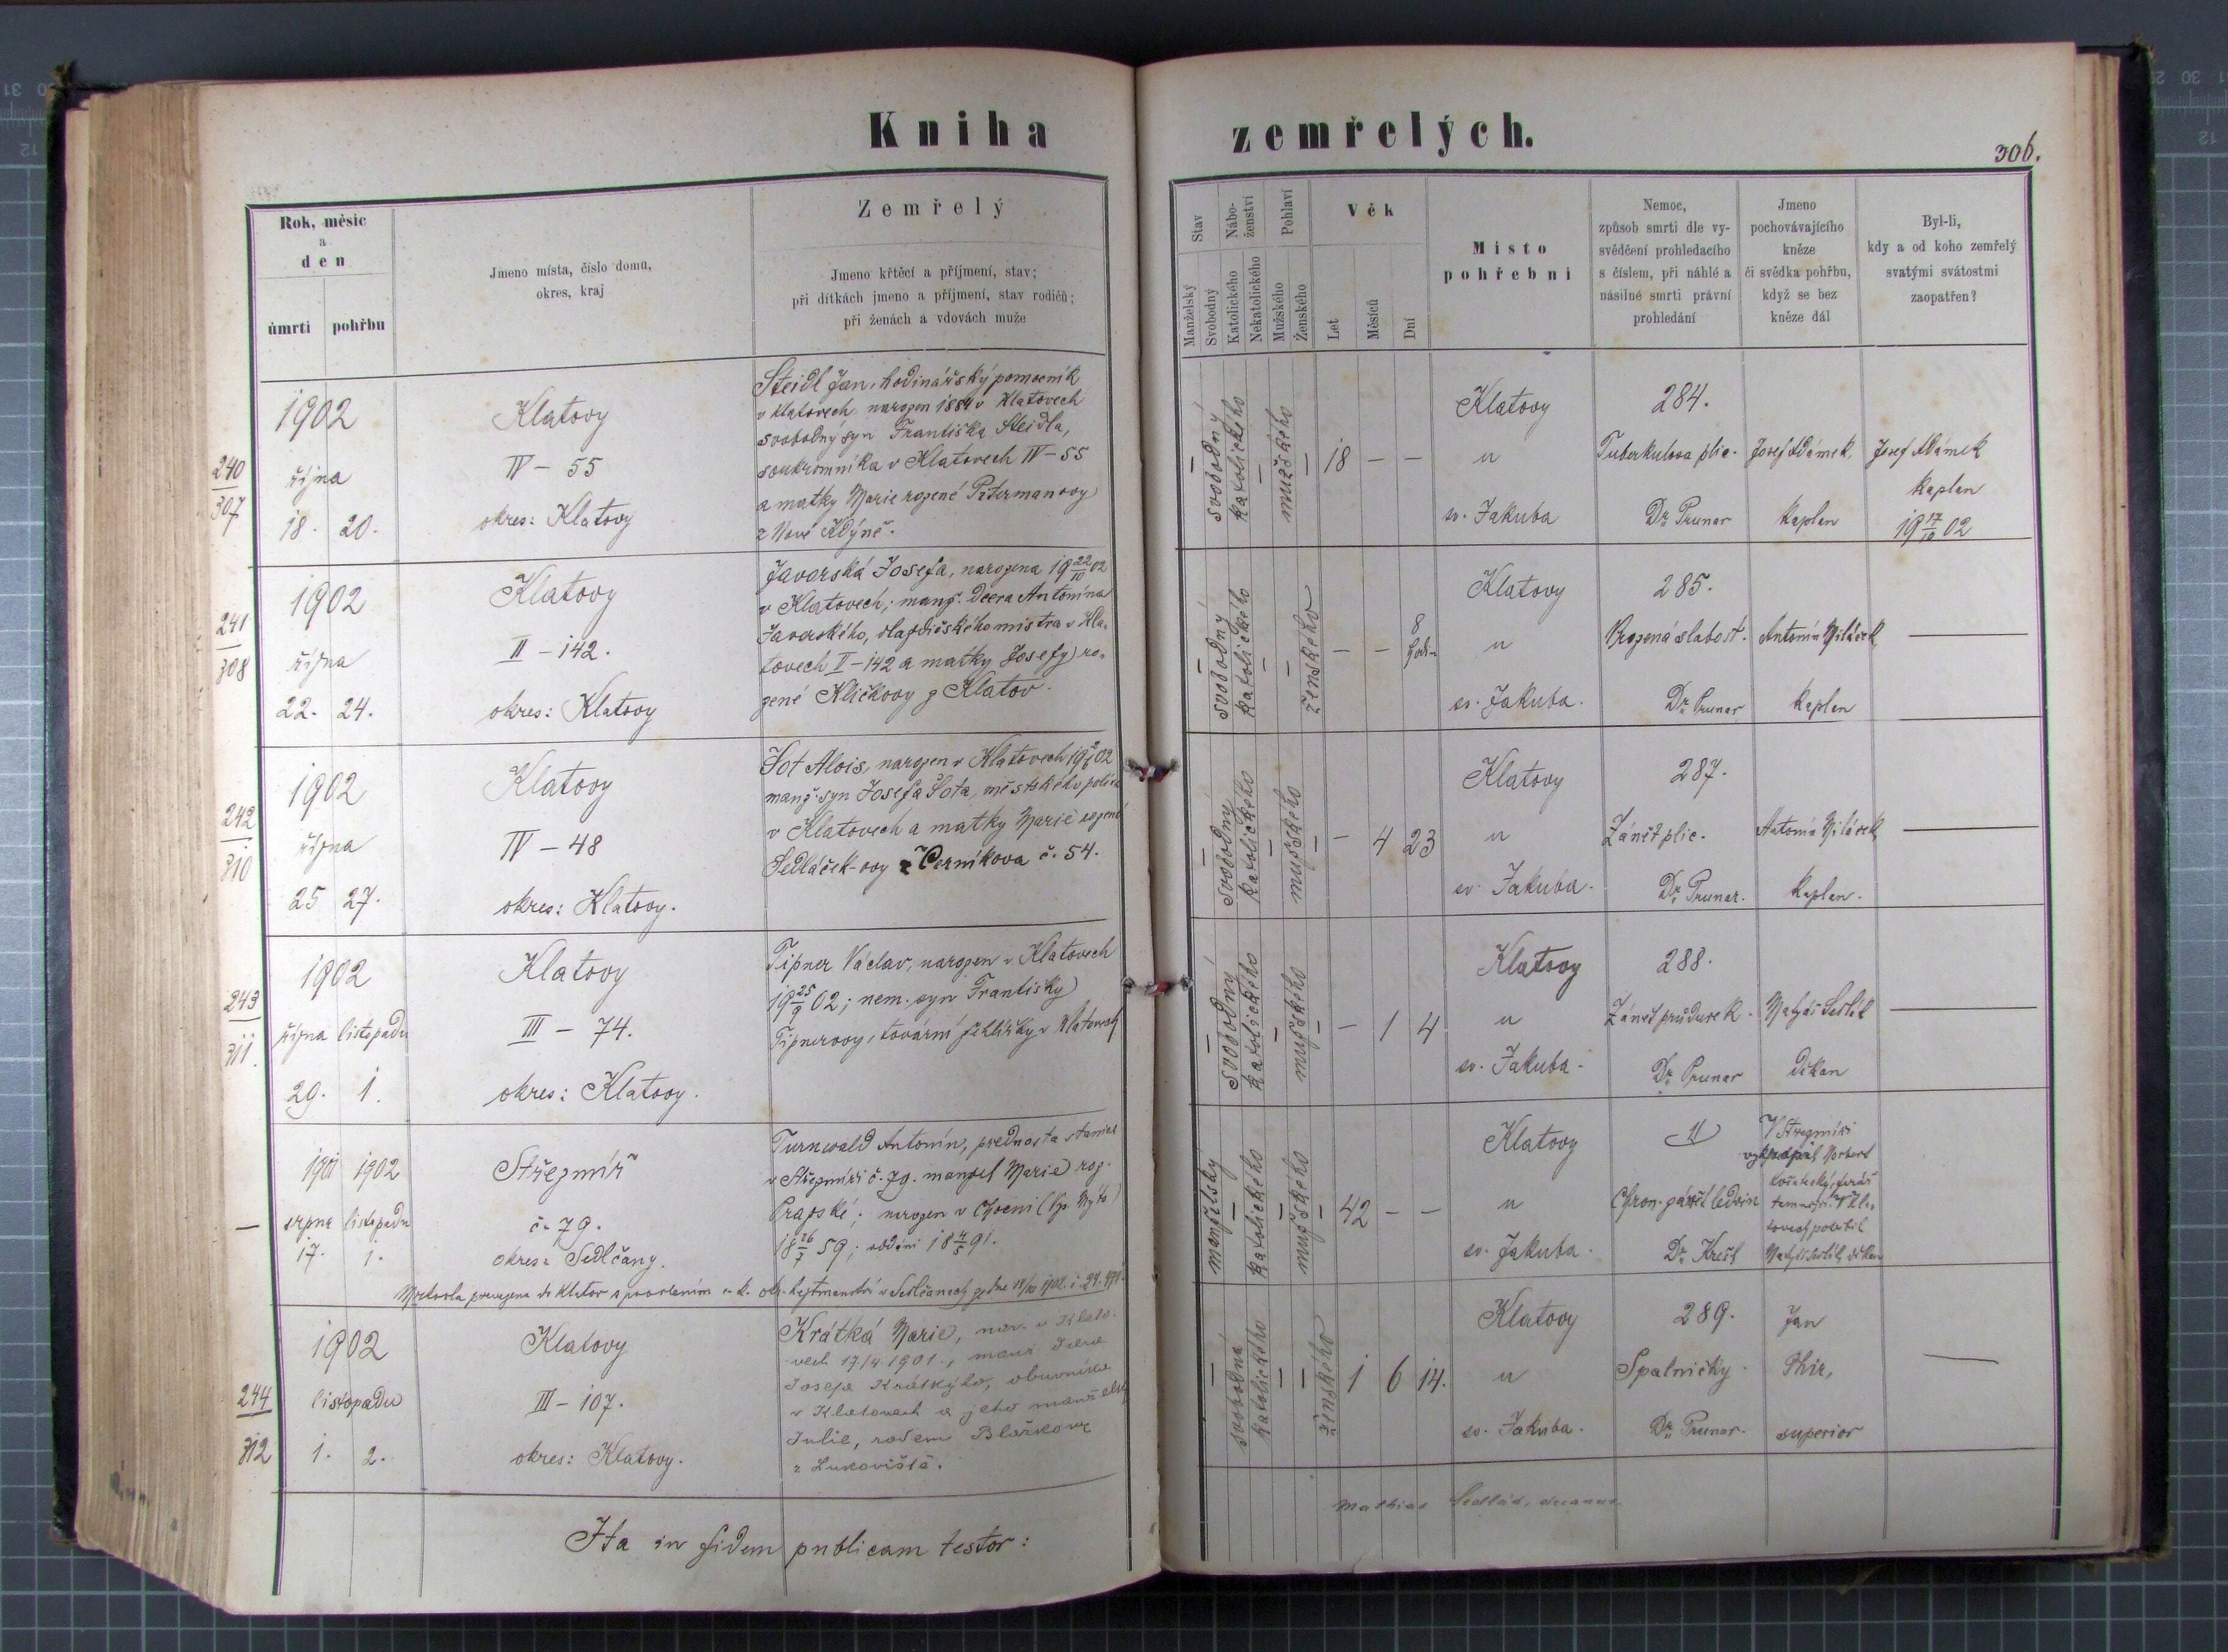 Kniha zemřelých.
306.
Rok, měsíc
a
den
úmrtí
pohřbu
Jmeno místa, číslo domu,
okres, kraj
Zemřelý
Jmeno křtěcí a příjmení, stav;
při dítkách jmeno a příjmení, stav rodičů;
při ženách a vdovách muže
Stav
Manželský
Svobodný
Nábo-
ženství
Katolického
Nekatolického
Pohlaví
Mužského
Ženského
Věk
Let
Měsíců
Dní
Místo
pohřební
Nemoc,
způsob smrti dle vy-
svědčení prohledacího
s číslem, při náhlé a
násilné smrti právní
prohledání
Jmeno
pochovávajícího
kněze
či svědka pohřbu,
když se bez
kněze dál
Byl-li,
kdy a od koho zemřelý
svatými svátostmi
zaopatřen?
240
307
1902
října
18. 20.
Klatovy
IV – 55
okres: Klatovy
Steidl Jan, hodinářský pomocník
v Klatovech, narozen 1884 v Klatovech
svobodný syn Františka Steidla,
soukromníka v Klatovech IV – 55
a matky Marie rozené Petermanovy
z Nové Kdýně.
– svobodný
katolického –
mužského –
18 – –
Klatovy
u
sv. Jakuba
284.
Tuberkulosa plic.
Dr. Prunar
Josef Adámek
kaplan
Josef Adámek
kaplan
19 17/10 02
241
308
1902
října
22. 24.
Klatovy
II – 142.
okres: Klatovy
Javorská Josefa, narozena 19 22/10 02
v Klatovech; manž. dcera Antonína
Javorského, sladičského mistra v Kla-
tovech II – 142 a matky Josefy ro-
zené Kličkovy z Klatov.
– svobodný
katolického –
– ženského
– – 8
hodin
Klatovy
u
sv. Jakuba.
285.
Vrozená slabost.
Dr. Prunar
Antonín Miláček
kaplan
242
310
1902
října
25 27.
Klatovy
IV – 48
okres: Klatovy.
Šot Alois, narozen v Klatovech 19 2/6 02
manž. syn Josefa Šota, městského
v Klatovech a matky Marie rozené
Sedláček-ovy z Černíkova č. 54.
– svobodný
katolického –
mužského –
– 4 23
Klatovy
u
sv. Jakuba.
287.
Zánět plic.
Dr. Prunar.
Antonín Miláček
kaplan.
243
311.
1902
října listopadu
29. 1.
Klatovy
III – 74.
okres: Klatovy.
Tipner Václav, narozen v Klatovech
19 25/9 02; nem. syn Františky
Tipnerovy, tovární žehlířky v Klatovech
– svobodný
katolického –
mužského –
– 1 4
Klatovy
u
sv. Jakuba.
288.
Zánět průdušek.
Dr. Prunar
Matyáš Sedlák
děkan
–
1901 1902
srpna listopadu
17. 1.
Střezmíř
č. 79.
okres: Sedlčany.
Turnwald Antonín, přednosta stanice
v Střezmíři č. 79. manžel Marie roz.
Pražské; narozen v Chocni (
18 26/7 59; oddáni 18 4/5 91.
Mrtvola převezena do Klatov s povolením c. k. okr. hejtmanství v Sedlčanech ze dne
manželský –
katolického –
mužského –
42 – –
Klatovy
u
sv. Jakuba.
Chron. zánět ledvin
Dr.
V Střezmíři
Norbert
farář
tamnější. V Kla-
tovech pohřbil
Matyáš Sedlák, děkan
244
312
1902
listopadu
1. 2.
Klatovy
III – 107.
okres: Klatovy.
Krátká Marie, nar. v Klato-
vech 17/4 1901., manž. dcera
Josefa Krátkýho, obuvníka
v Klatovech a jeho manželky
Julie, rodem Blažkové
z Lukoviště.
– svobodná
katolického –
– ženského
1 6 14.
Klatovy
u
sv. Jakuba.
289.
Spalničky.
Dr. Prunar.
Jan
Thir,
superior
Ita in fidem publicam testor:
Mathias Sedlák, decanus.